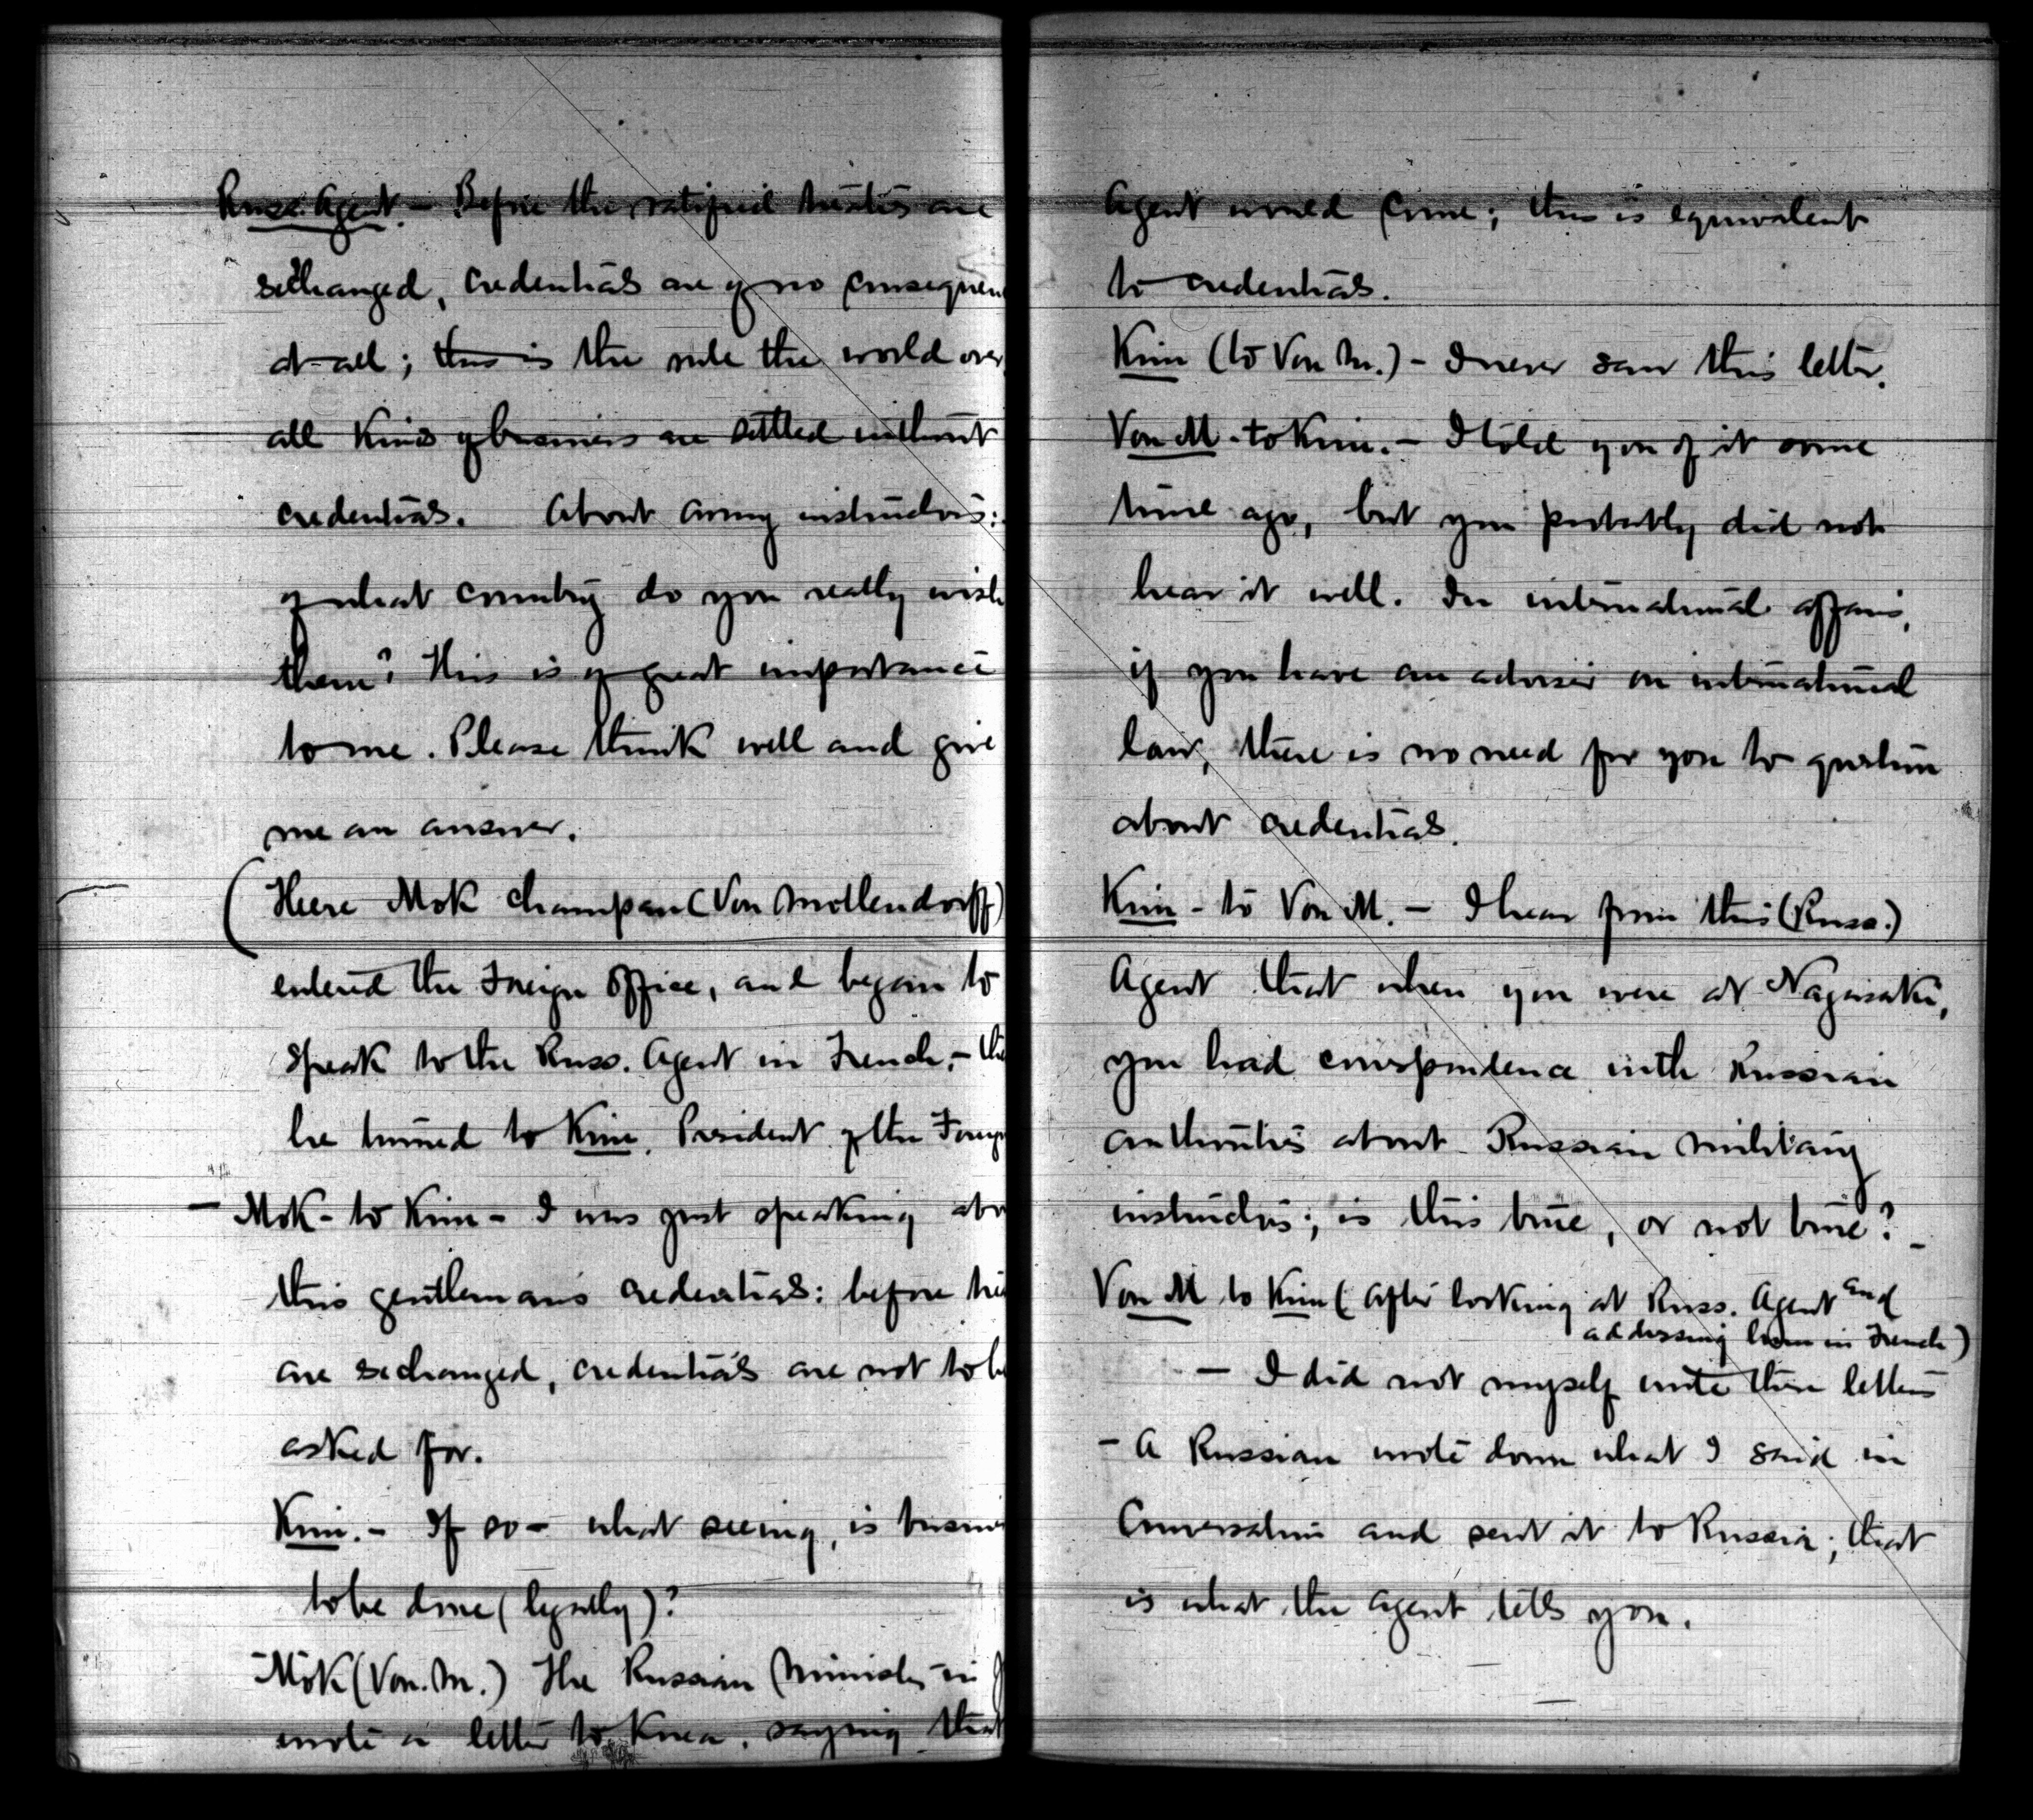 Russ. Agent. - Before the ratified treaties are
exchanged, credentials are of no consequen
at all; this is the rule the world over
all kinds of business are settled without
credentials. About army instructors:
of what country do you really wish
them? This is of great importance
to me. Please think well and give
me an answer.
(Here Mok Champan (Von Mollendorff)
entered the Foreign Office, and began to
speak to the Russ. Agent in French, - th
he turned to Kim, President of the Foreign
- Mok - to Kim - I was just speaking abo
this gentleman's credentials: before tr
are exchanged, credentials are not to b
asked for.
Kim. - If so - what seeing, is busin
to be done (legally)?
Mok (Von. M.) The Russian Minister in J
wrote a letter to Korea, saying that
Agent would come; this is equivalent
to credentials.
Kim (to Von M.) - I never saw this letter.
Von M - to Kim. - I told you of it some
time ago, but you probably did not
hear it well. In international affairs,
if you have an adviser on international
law, there is no need for you to question
about credentials.
Kim - to Von M. - I hear from this (Russ.)
Agent that when you were at Nagasaki,
you had correspondence with Russian
authorities about Russian military
instructors; is this true, or not true? -
Von M to Kim (after looking at Russ. Agent and
addressing him in French)
- I did not myself write these letters
- A Russian wrote down what I said in
Conversation and sent it to Russia; that
is what the Agent tells you.